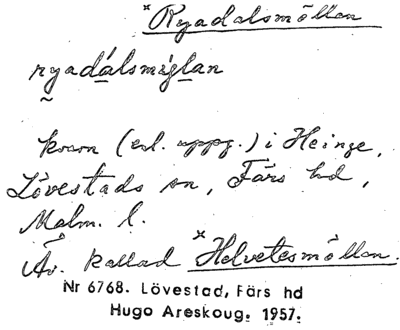 *Ryadalsmöllan
ryadálsmö̀lan
kvarn (enl. uppg.) i Heinge,
Lövestads sn, Färs hd,
Malm. l.
Äv. kallad *Helvetesmöllan.
Nr 6768. Lövestad, Färs hd
Hugo Areskoug. 1957.